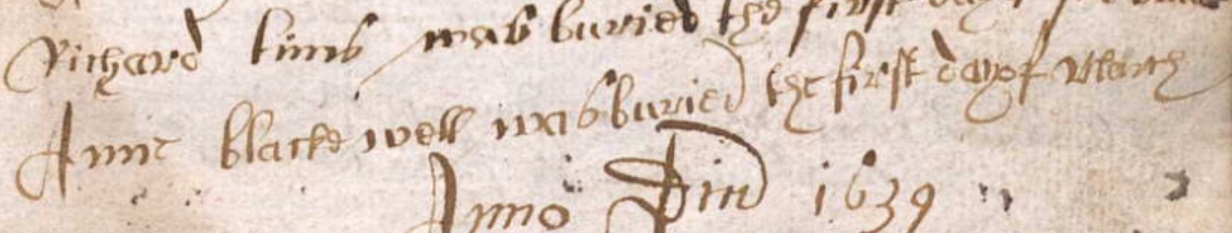 Richard tims was buried the first day
Anne blacke well was buried the first day of March
Anno Dni 1639